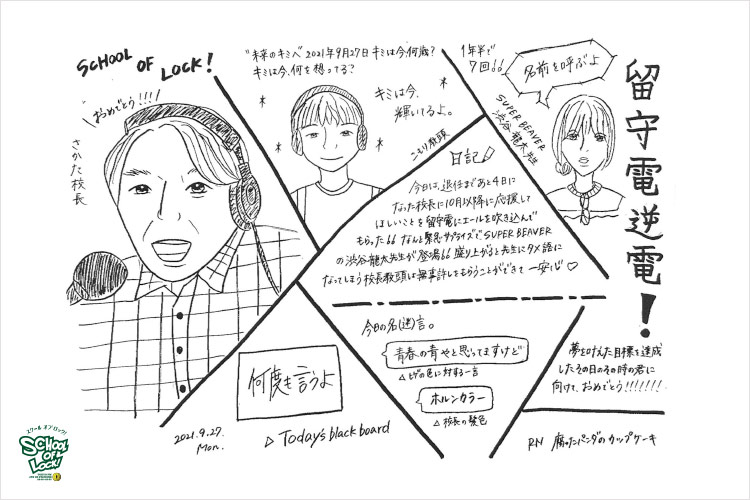 SCHOOL OF LOCK!
おめでとう!!!!
さかた校長
"未来のキミへ" 2021年9月27日 キミは今何歳?
キミは今、何を想ってる?
キミは今、
輝いてるよ。
こもり教頭
1年半で
7回
名前を呼ぶよ
SUPER BEAVER
渋谷龍太先生
留守電逆電!
日記
今日は、退任まであと4日に
なった校長に10月以降に応援して
ほしいことを留守電にエールを吹き込んで
もらった なんと緊急サプライズでSUPER BEAVER
の渋谷龍太先生が登場 盛り上がると先生にタメ語に
なってしまう校長教頭は無事許しをもらうことができて一安心♡
今日の名(迷)言。
青春の青やと思ってますけど
△ヒゲの色に対する一言
ホルンカラー
△校長の髪色
夢を叶えた目標を達成
したその日のその時の君に
向けて、おめでとう!!!!!!!
何度も言うよ
▷ Today's black board
2021.9.27.
Mon.
RN 腐ったパンダのカップケーキ
スクール オブ ロック!
SCHOOL OF LOCK!